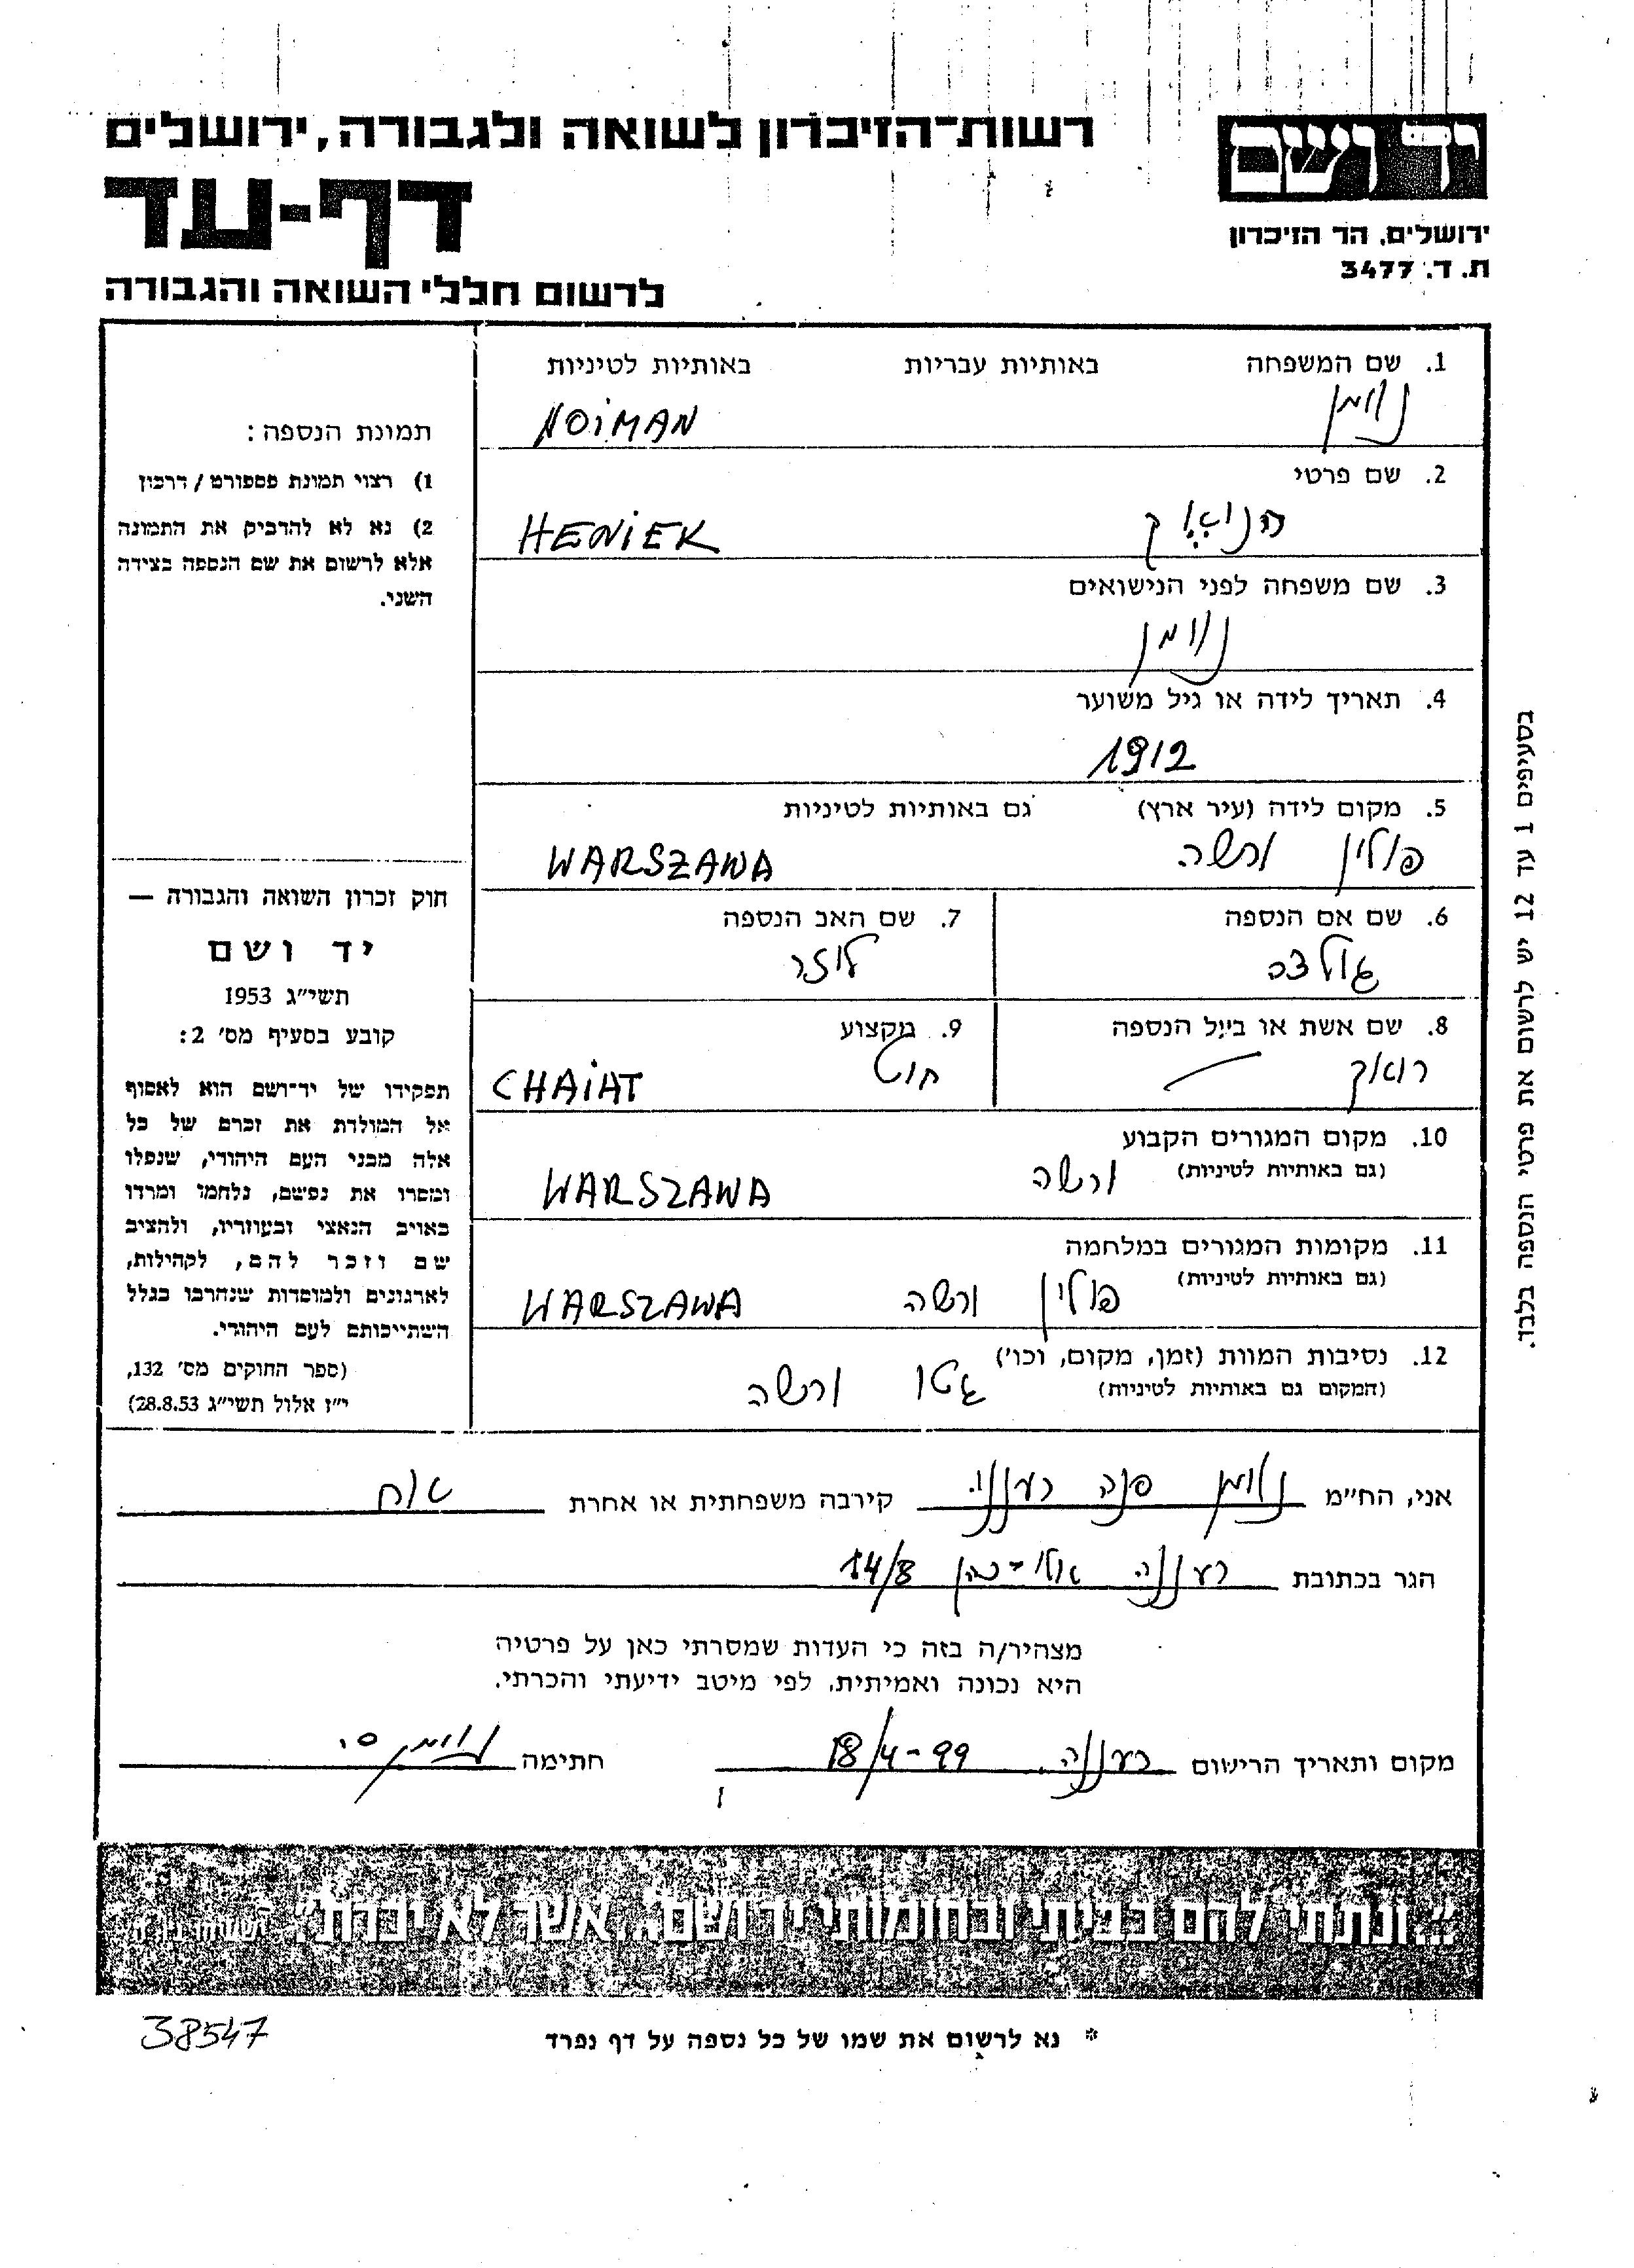 רשות־הזיכרון לשואה ולגבורה, ירושלים
יד ושם
דף-עד
ירושלים, הר הזיכרון
ת. ד. 3477
לרשום חללי השואה והגבורה
1. שם המשפחה באותיות עבריות באותיות לטיניות
נוימן NOIMAN
2. שם פרטי
HENIEK
3. שם משפחה לפני הנישואים
נוימן
4. תאריך לידה או גיל משוער
1912
5. מקום לידה (עיר ארץ) גם באותיות לטיניות
פולין ורשה WARSZAWA
6. שם אם הנספה 7. שם האב הנספה
גולדה לוזר
8. שם אשת או בעל הנספה 9. מקצוע
רווק — חייט CHAIAT
10. מקום המגורים הקבוע
(גם באותיות לטיניות) ורשה WARSZAWA
11. מקומות המגורים במלחמה
(גם באותיות לטיניות) פולין ורשה WARSZAWA
12. נסיבות המוות (זמן, מקום, וכו')
(המקום גם באותיות לטיניות) גטו ורשה
תמונת הנספה:
1) רצוי תמונת פספורט / דרכון
2) נא לא להדביק את התמונה
אלא לרשום את שם הנספה בצידה
השני.
חוק זכרון השואה והגבורה —
יד ושם
תשי״ג 1953
קובע בסעיף מס׳ 2:
תפקידו של יד־ושם הוא לאסוף
אל המולדת את זכרם של כל
אלה מבני העם היהודי, שנפלו
ומסרו את נפשם, נלחמו ומרדו
באויב הנאצי ובעוזריו, ולהציב
שם וזכר להם, לקהילות,
לארגונים ולמוסדות שנהרבו בגלל
השתייכותם לעם היהודי.
(ספר החוקים מס׳ 132,
י״ז אלול תשי״ג 28.8.53)
בסעיפים 1 עד 12 יש לרשום את פרטי הנספה בלבד.
אני, הח״מ נוימן קירבה משפחתית או אחרת
הגר בכתובת רעננה 14/8
מצהיר/ה בזה כי העדות שמסרתי כאן על פרטיה
היא נכונה ואמיתית, לפי מיטב ידיעתי והכרתי.
מקום ותאריך הרישום רעננה 18/4-99 חתימה נוימן
״...ונתתי להם בביתי ובחומותי יד ושם... אשר לא יכרת״. ישעיהו נ״ו ה׳
* נא לרשום את שמו של כל נספה על דף נפרד
38547